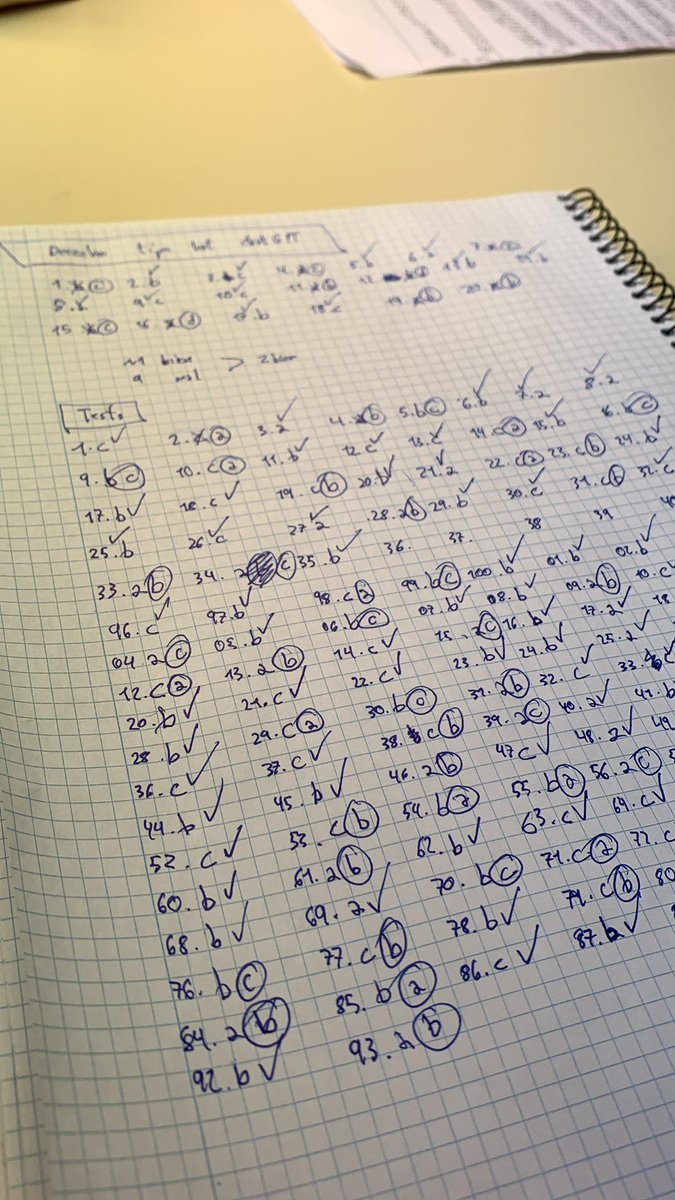 tipo test chat GPT
1. c 2. b 3. c 4. c 5. b 6. b 7.
8. 9. c 10. c 11. b 12. 13. b 14. b
15. c 16. d 17. b 18. c 19. b 20. b
11 bien
9 mal > 2 bien
Tests
1. c ✓ 2. a 3. a ✓ 4. b 5. b c 6. b ✓ 7. a ✓ 8. a ✓
9. b c 10. c a 11. b ✓ 12. c ✓ 13. c ✓ 14. c a 15. b ✓ 16. b c
17. b ✓ 18. c ✓ 19. c b 20. b ✓ 21. a ✓ 22. c a 23. c b 24. b ✓
25. b ✓ 26. c ✓ 27. a ✓ 28. a b 29. b ✓ 30. c ✓ 31. c b 32. c ✓
33. a b 34. a c 35. b ✓ 36. 37. 38 39 40
96. c ✓ 97. b ✓ 98. c a 99. b c 100. b ✓ 01. b ✓ 02. b ✓
04. a c 05. b ✓ 06. b c 07. b ✓ 08. b ✓ 09. a b 10. c ✓
12. c a 13. a b 14. c ✓ 15. a c 16. b ✓ 17. a ✓ 18.
20. b ✓ 21. c ✓ 22. c ✓ 23. b ✓ 24. b ✓ 25. a ✓
28. b ✓ 29. c a 30. b a 31. a b 32. c ✓ 33. c
36. c ✓ 37. c ✓ 38. c b 39. a c 40. a ✓ 41. b
44. b ✓ 45. b ✓ 46. a b 47 c ✓ 48. a ✓ 49.
52. c ✓ 53. c b 54. b a 55. b a 56. a c
60. b ✓ 61. a b 62. b ✓ 63. c ✓ 64. c ✓
68. b ✓ 69. a ✓ 70. b c 71. c a 72. c
76. b c 77. c b 78. b ✓ 79. c b 80
84. a b 85. b a 86. c ✓ 87. b ✓
92. b ✓ 93. a b